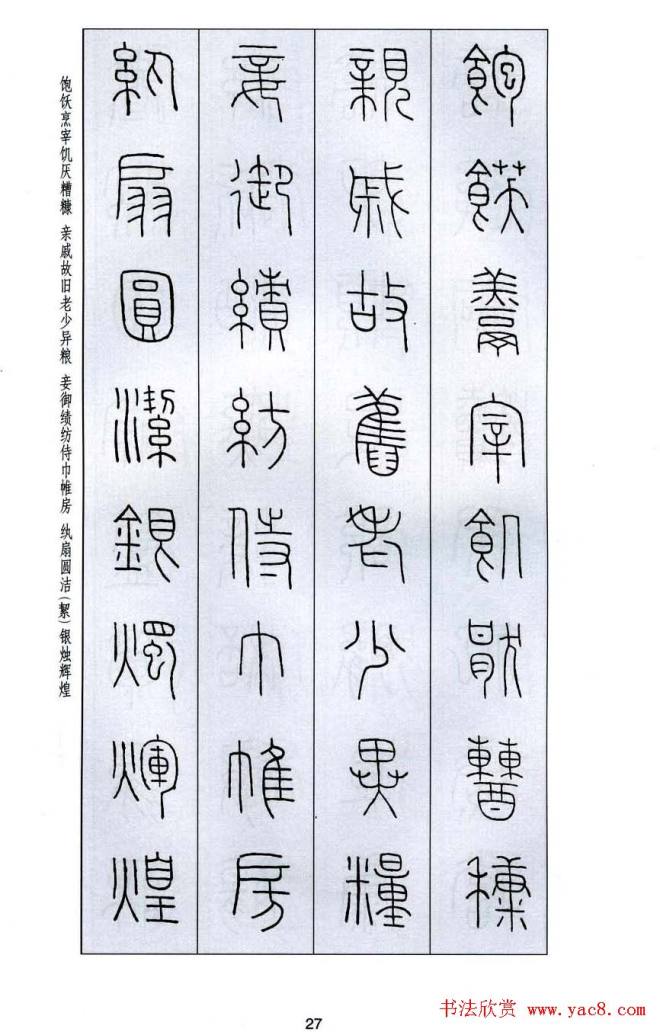 飽飫亯宰飢猒糟穅
親戚故舊老少異糧
妾御績紡侍巾帷房
紈扇圓潔銀燭煇煌
饱饫烹宰饥厌糟糠 亲戚故旧老少异粮 妾御绩纺侍巾帷房 纨扇圆洁(絜)银烛辉煌
27
书法欣赏 www.yac8.com